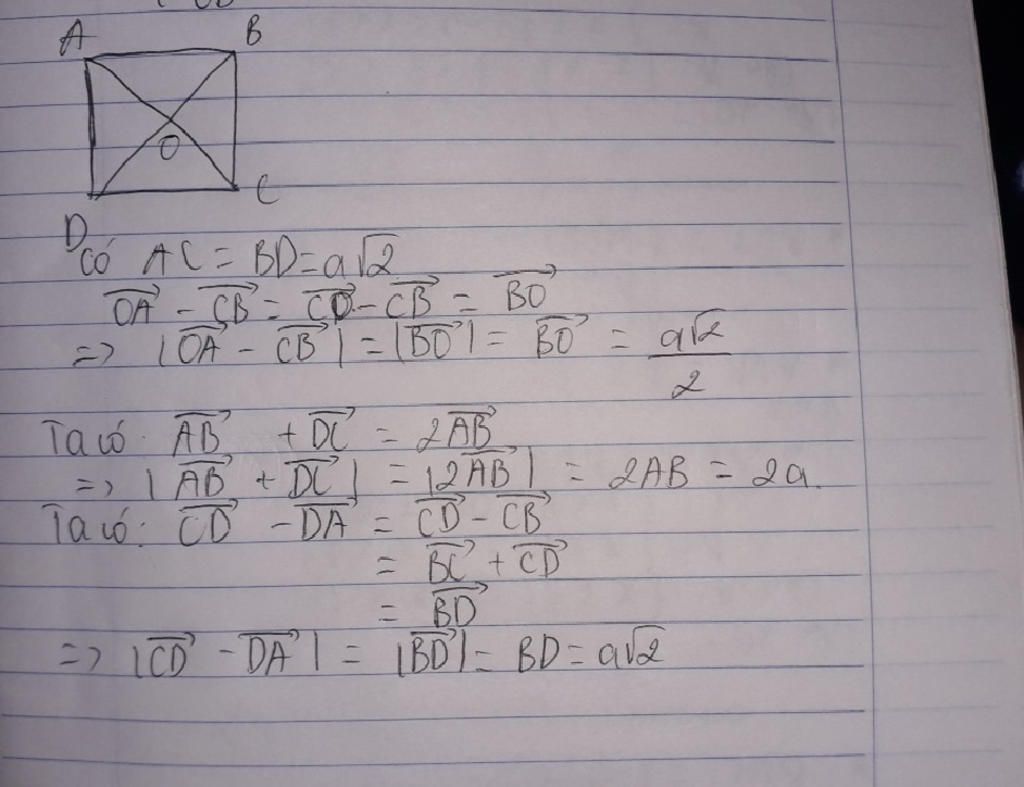 A B
O
C
D
Có AC = BD = a√2
$\overrightarrow{OA} - \overrightarrow{CB} = \overrightarrow{CO} - \overrightarrow{CB} = \overrightarrow{BO}$
=> $|\overrightarrow{OA} - \overrightarrow{CB}| = |\overrightarrow{BO}| = \overrightarrow{BO} = \frac{a\sqrt{2}}{2}$
Ta có: $\overrightarrow{AB} + \overrightarrow{DC} = 2\overrightarrow{AB}$
=> $|\overrightarrow{AB} + \overrightarrow{DC}| = |2\overrightarrow{AB}| = 2AB = 2a.$
Ta có: $\overrightarrow{CD} - \overrightarrow{DA} = \overrightarrow{CD} - \overrightarrow{CB}$
$= \overrightarrow{BC} + \overrightarrow{CD}$
$= \overrightarrow{BD}$
=> $|\overrightarrow{CD} - \overrightarrow{DA}| = |\overrightarrow{BD}| = BD = a\sqrt{2}$